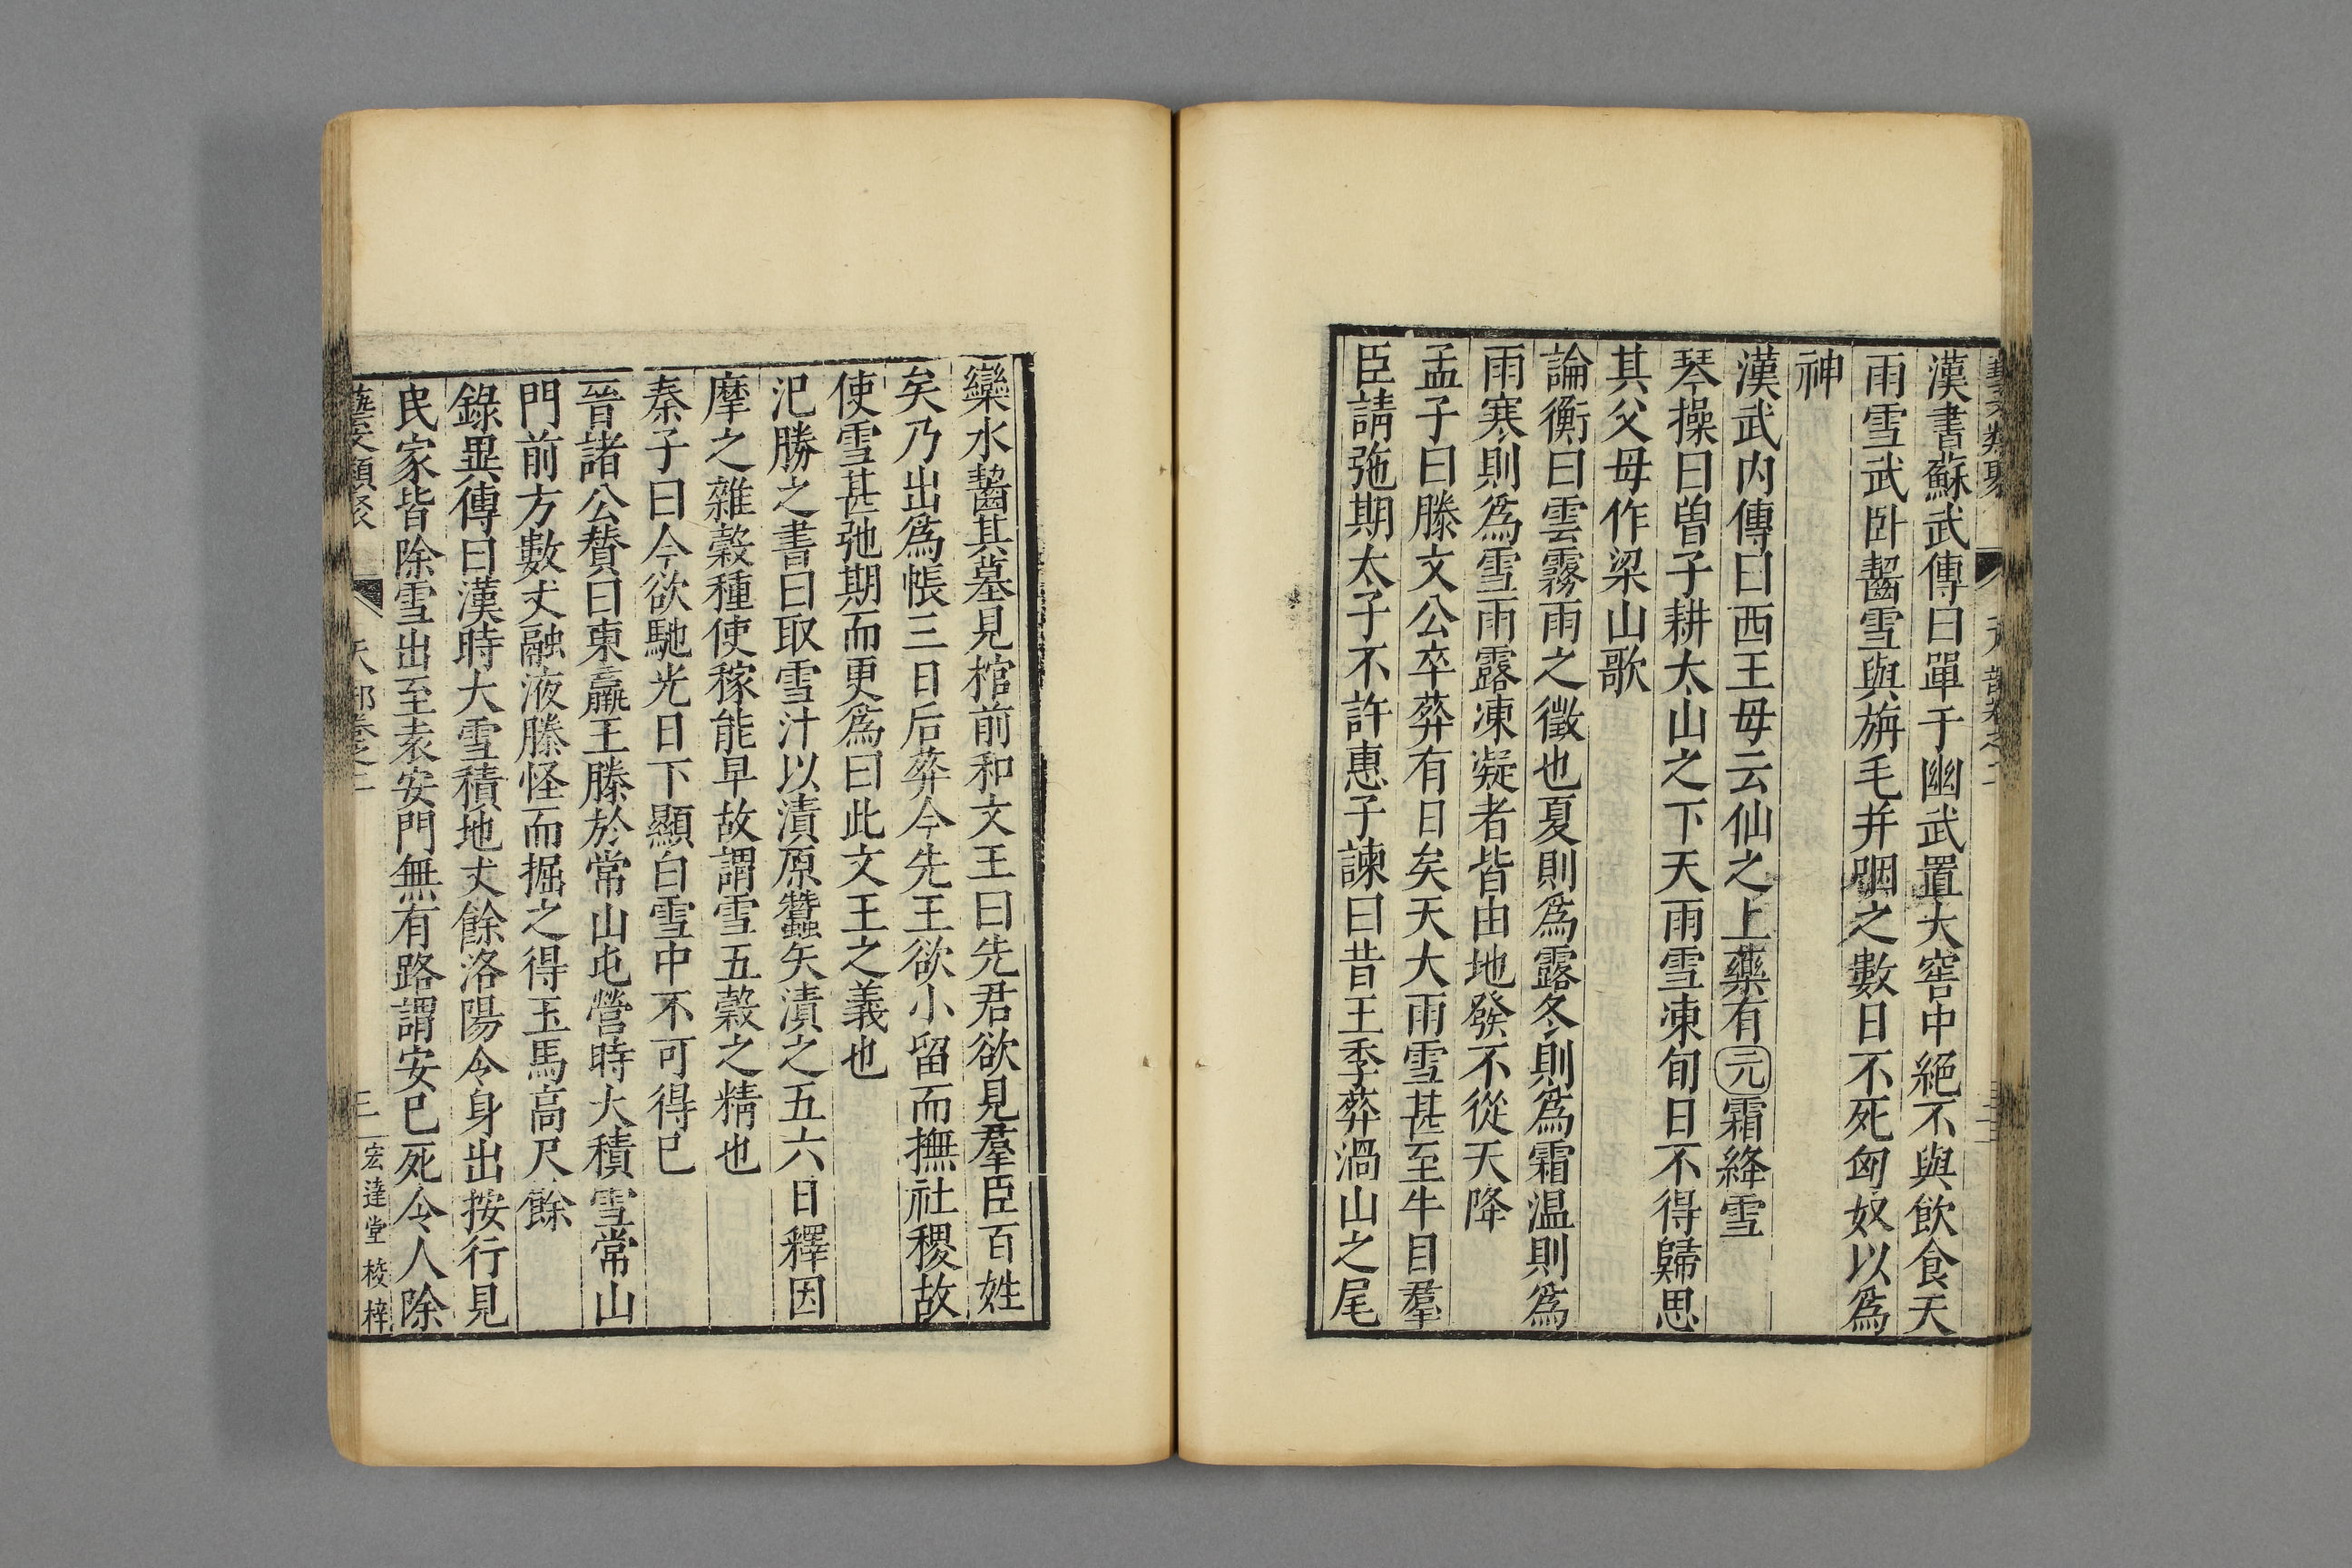 漢書蘇武傳曰單于幽武置大窖中絕不與飲食天
雨雪武卧齧雪與旃毛并咽之數日不死匈奴以爲
神
漢武内傳曰西王母云仙之上藥有元霜絳雪
琴操曰曽子耕太山之下天雨雪凍旬日不得歸思
其父母作梁山歌
論衡曰雲霧雨之徵也夏則爲露冬則爲霜温則爲
雨寒則爲雪雨露凍凝者皆由地發不從天降
孟子曰滕文公卒葬有日矣天大雨雪甚至牛目羣
臣請弛期太子不許惠子諫曰昔王季葬渦山之尾
欒水齧其墓見棺前和文王曰先君欲見羣臣百姓
矣乃出爲帳三日后葬今先王欲小留而撫社稷故
使雪甚弛期而更爲日此文王之義也
氾勝之書曰取雪汁以漬原蠶矢漬之五六日釋因
摩之雜穀種使稼能旱故謂雪五穀之精也
秦子曰今欲馳光日下顯白雪中不可得已
晉諸公贊曰東嬴王滕於常山屯營時大積雪常山
門前方數丈融液滕怪而掘之得玉馬高尺餘
錄異傳曰漢時大雪積地丈餘洛陽令身出按行見
民家皆除雪出至袁安門無有路謂安已死令人除
藝文類聚 天部卷之二 三 宏達堂校梓